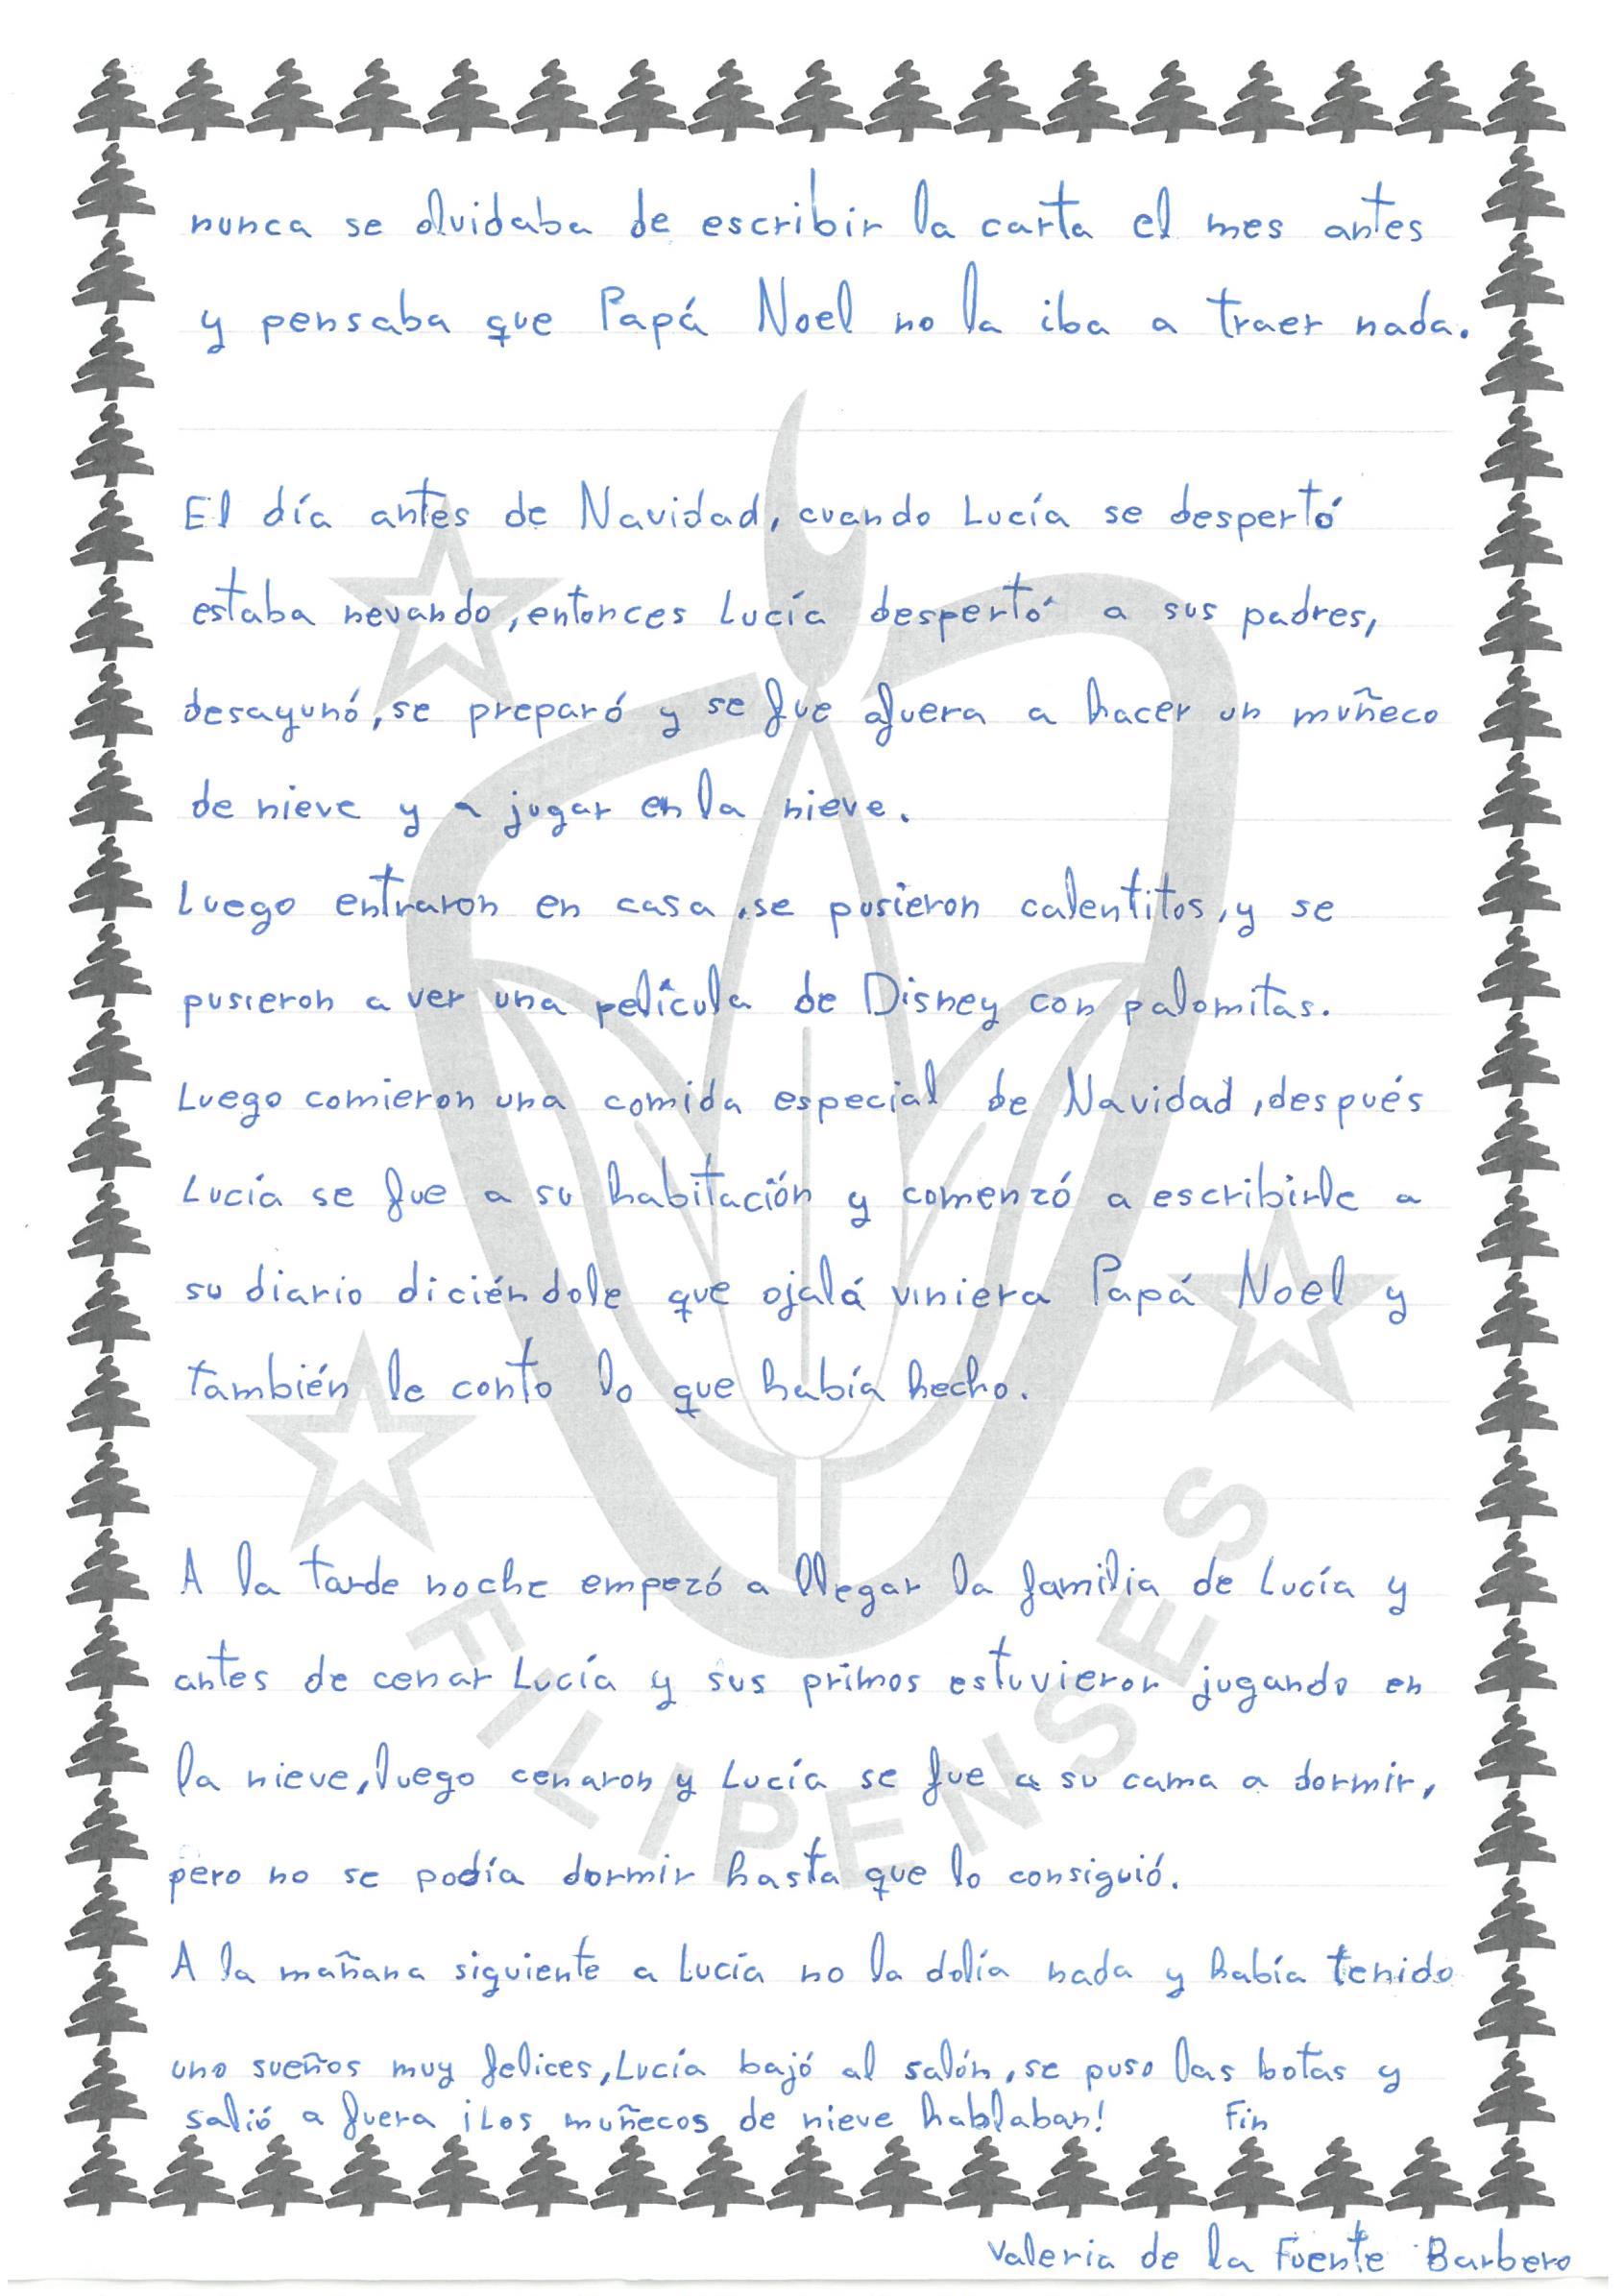 nunca se olvidaba de escribir la carta el mes antes
y pensaba que Papá Noel no la iba a traer nada.
El día antes de Navidad, cuando Lucía se despertó
estaba nevando, entonces Lucía despertó a sus padres,
desayunó, se preparó y se fue afuera a hacer un muñeco
de nieve y a jugar en la nieve.
Luego entraron en casa, se pusieron calentitos, y se
pusieron a ver una película de Disney con palomitas.
Luego comieron una comida especial de Navidad, después
Lucía se fue a su habitación y comenzó a escribirle a
su diario diciéndole que ojalá viniera Papá Noel y
también le conto lo que había hecho.
A la tarde noche empezó a llegar la familia de Lucía y
antes de cenar Lucía y sus primos estuvieron jugando en
la nieve, luego cenaron y Lucía se fue a su cama a dormir,
pero no se podía dormir hasta que lo consiguió.
A la mañana siguiente a Lucía no la dolía nada y había tenido
uno sueños muy felices, Lucía bajó al salón, se puso las botas y
salió a fuera ¡Los muñecos de nieve hablaban! Fin
Valeria de la Fuente Barbero
FILIPENSES